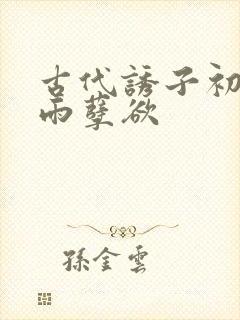 古代誘子初
雨孽欲
孫金雲